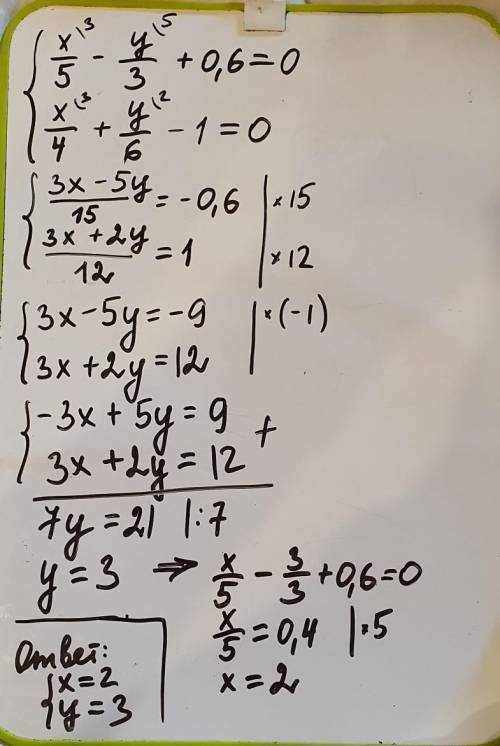 x\3/5 - y\5/3 + 0,6 = 0
x\3/4 + y\2/6 - 1 = 0
3x - 5y/15 = -0,6 | ×15
3x + 2y/12 = 1 | ×12
3x - 5y = -9 | ×(-1)
3x + 2y = 12
-3x + 5y = 9
3x + 2y = 12 +
7y = 21 |:7
y = 3 => x/5 - 3/3 + 0,6 = 0
x/5 = 0,4 | ×5
x = 2
Ответ:
x = 2
y = 3